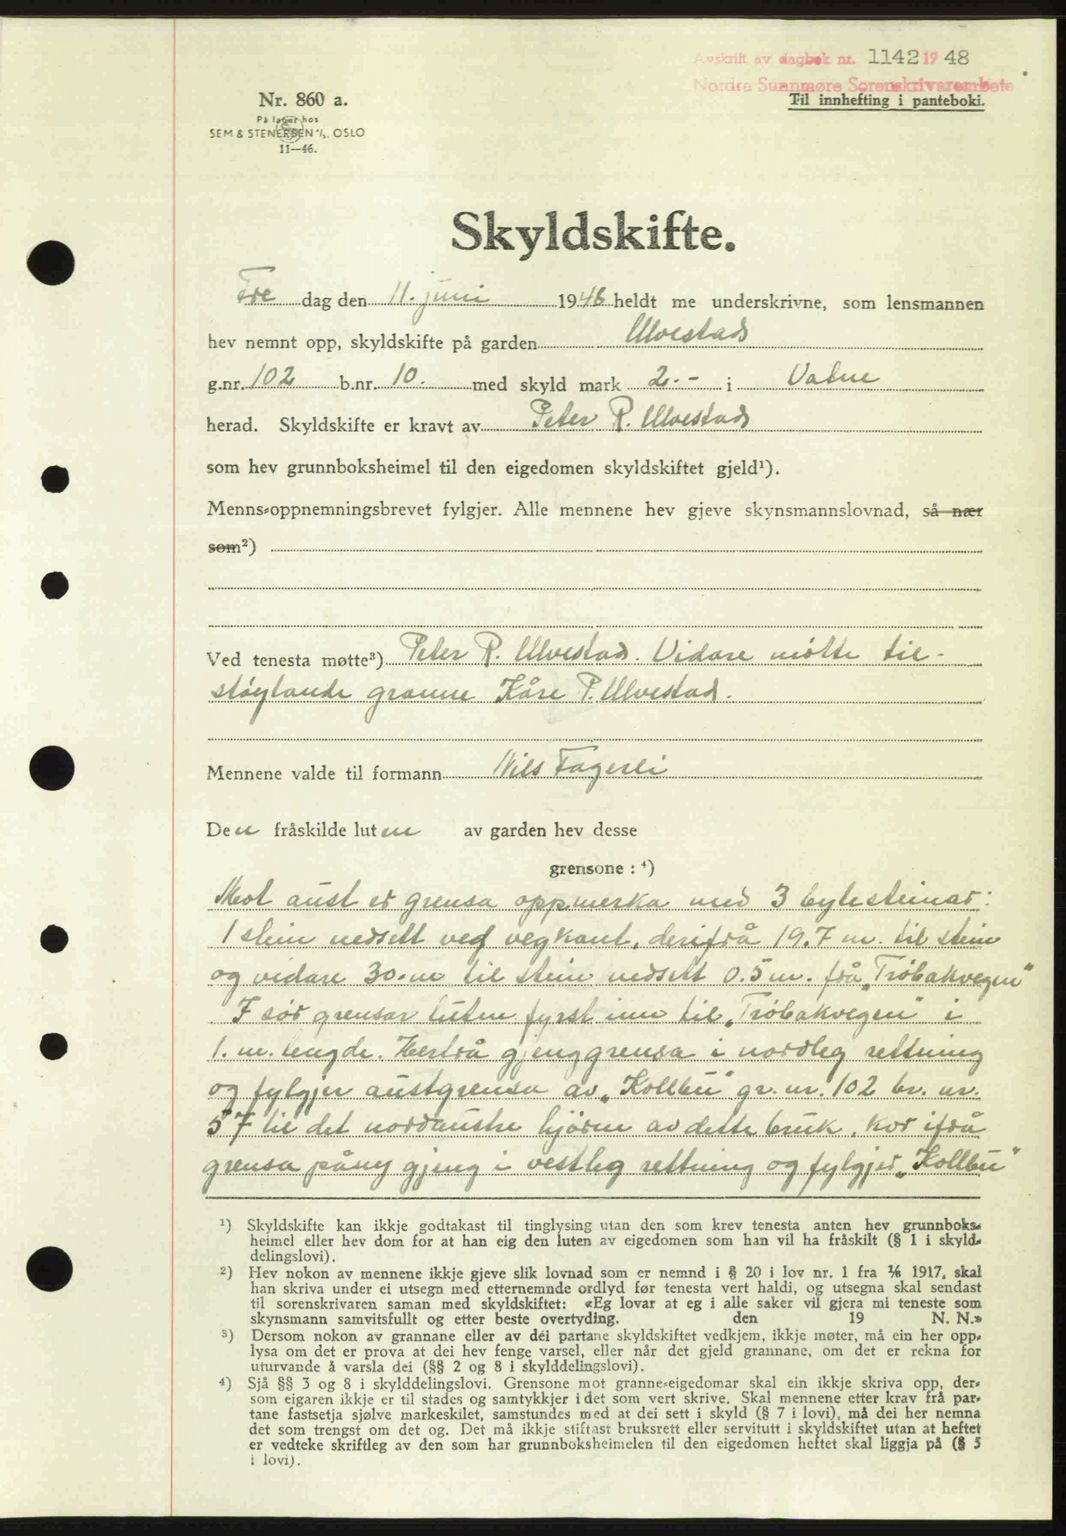 Avskrift av dagbok nr. 1142 1948
Nordre Sunnmøre Sorenskrivarembete
Til innhefting i panteboki.
Nr. 860 a.
På lager hos
SEM & STENERSEN A/S. OSLO
11—46.
Skyldskifte.
Fre dag den 11. juni 1948 heldt me underskrivne, som lensmannen
hev nemnt opp, skyldskifte på garden Ulvestad
g.nr. 102 b.nr. 10. med skyld mark 2.- i Vatne
herad. Skyldskifte er kravt av Peter R. Ulvestad
som hev grunnboksheimel til den eigedomen skyldskiftet gjeld¹).
Menns-oppnemningsbrevet fylgjer. Alle mennene hev gjeve skynsmannslovnad, så nær
som²)
Ved tenesta møtte³) Peter R. Ulvestad. Vidare møtte til-
støytande granne Kåre P. Ulvestad.
Mennene valde til formann Nils Fagerli
Den fråskilde luten av garden hev desse
grensone : ⁴)
Mot aust er grensa oppmerka med 3 bytesteinar:
1 stein nedsett ved vegkant, derifrå 19.7 m. til stein
og vidare 30.m til stein nedsett 0.5 m. frå „Tröbakvegen"
I sør grensar luten fyrst inn til „Tröbakvegen" i
1. m. lengde. Herfrå gjeng grensa i nordleg rettning
og fylgjer austgrensa av „Kollbu" gr. nr. 102 br. nr.
57 til det nordaustre hjörne av dette bruk, kor ifrå
grensa påny gjeng i vestleg rettning og fylgjer „Kollbu"
¹) Skyldskifte kan ikkje godtakast til tinglysing utan den som krev tenesta anten hev grunnboks-
heimel eller hev dom for at han eig den luten av eigedomen som han vil ha fråskilt (§ 1 i skyld-
delingslovi).
²) Hev nokon av mennene ikkje gjeve slik lovnad som er nemnd i § 20 i lov nr. 1 fra ⅛ 1917, skal
han skriva under ei utsegn med etternemnde ordlyd før tenesta vert haldi, og utsegna skal sendast
til sorenskrivaren saman med skyldskiftet: «Eg lovar at eg i alle saker vil gjera mi teneste som
skynsmann samvitsfullt og etter beste overtyding. den 19 N. N.»
³) Dersom nokon av grannane eller av dei partane skyldskiftet vedkjem, ikkje møter, må ein her opp-
lysa om det er prova at dei hev fenge varsel, eller når det gjeld grannane, om det er rekna for
uturvande å varsla dei (§§ 2 og 8 i skylddelingslovi).
⁴) Sjå §§ 3 og 8 i skylddelingslovi. Grensone mot granne-eigedomar skal ein ikkje skriva opp, der-
som eigaren ikkje er til stades og samtykkjer i det som vert skrive. Skal mennene etter krav frå par-
tane fastsetja sjølve markeskilet, samstundes med at dei sett i skyld (§ 7 i lovi), må dei her nemna
det som trengst om det og. Det må ikkje stiftast bruksrett eller servitutt i skyldskiftet utan at heftet
er vedteke skriftleg av den som har grunnboksheimelen til den eigedomen heftet skal liggja på (§ 5
i lovi).